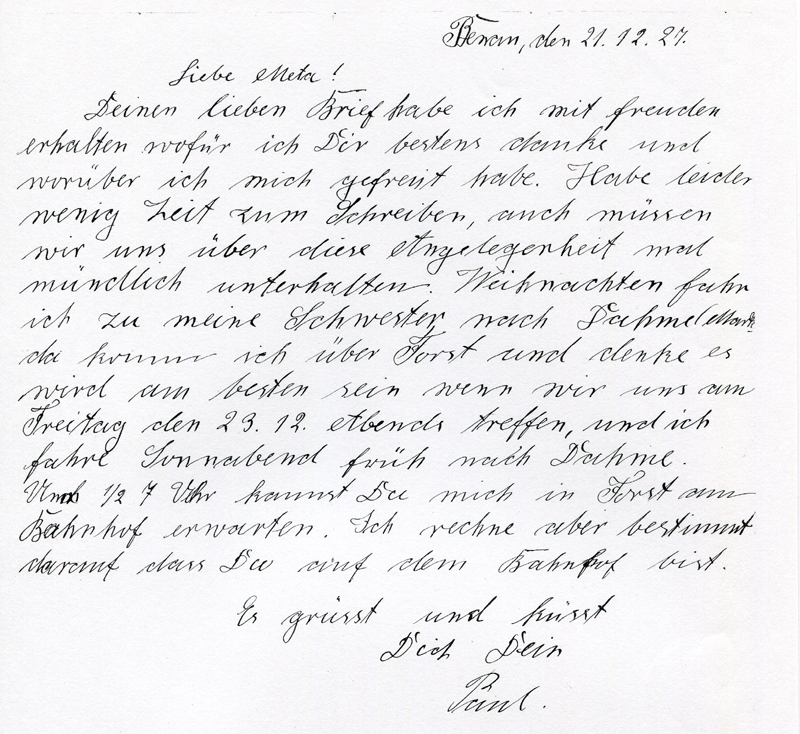 Benau, den 21.12.27.
Liebe Meta!
Deinen lieben Brief habe ich mit freuden
erhalten wofür ich Dir bestens danke und
worüber ich mich gefreut habe. Habe leider
wenig Zeit zum Schreiben, auch müssen
wir uns über diese Angelegenheit mal
mündlich unterhalten. Weihnachten fahr
ich zu meine Schwester nach Dahme (Mark
da komm ich über Forst und denke es
wird am besten sein wenn wir uns am
Freitag den 23.12. Abends treffen, und ich
fahre Sonnabend früh nach Dahme.
Um 1/2 7 Uhr kannst Du mich in Forst am
Bahnhof erwarten. Ich rechne aber bestimmt
darauf dass Du auf dem Bahnhof bist.
Es grüsst und küsst
Dich Dein
Paul.